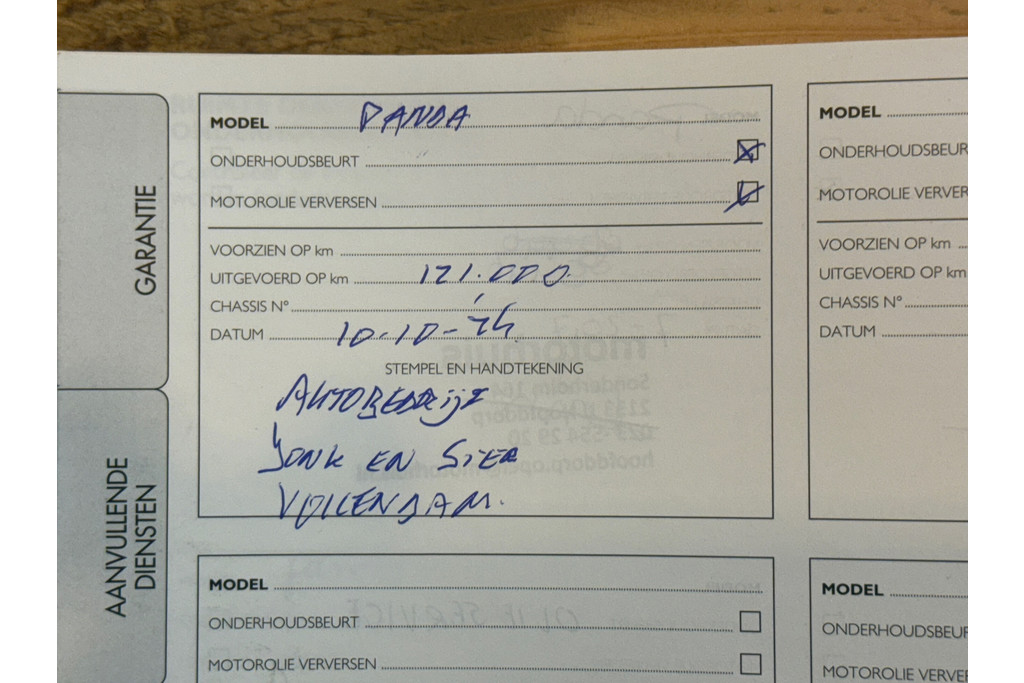 GARANTIE
AANVULLENDE
DIENSTEN
MODEL PANDA
ONDERHOUDSBEURT
MOTOROLIE VERVERSEN
VOORZIEN OP km
UITGEVOERD OP km 121.000
CHASSIS N°
DATUM 10-10-24
STEMPEL EN HANDTEKENING
AUTOBEDRIJF
JONK EN SIER
VOLLENDAM.
MODEL
ONDERHOUDSBEURT
MOTOROLIE VERVERSEN
VOORZIEN OP km
UITGEVOERD OP km
CHASSIS N°
DATUM
MODEL
ONDERHOUDSBEURT
MOTOROLIE VERVERSEN
MODEL
ONDERHOUDSBEUR
MOTOROLIE VERVER